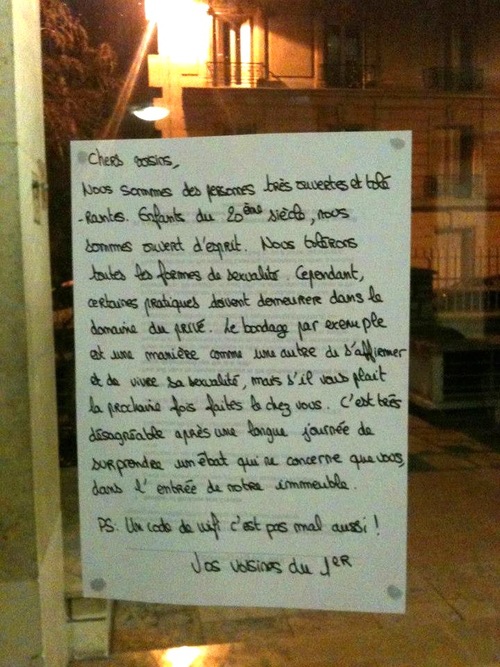 Chers voisins,
Nous sommes des personnes très ouvertes et tolé
-rantes. Enfants du 20ème siècle, nous
sommes ouvert d'esprit. Nous tolérons
toutes les formes de sexualité. Cependant,
certaines pratiques doivent demeurere dans le
domaine du privé. Le bondage par exemple
est une manière comme une autre de s'affirmer
et de vivre sa sexualité, mais s'il vous plait
la prochaine fois faites le chez vous. C'est très
désagréable après une longue journée de
surprendre un ébat qui ne concerne que vous,
dans l'entrée de notre immeuble.
PS: Un code de wifi c'est pas mal aussi !
Vos voisines du 1ER